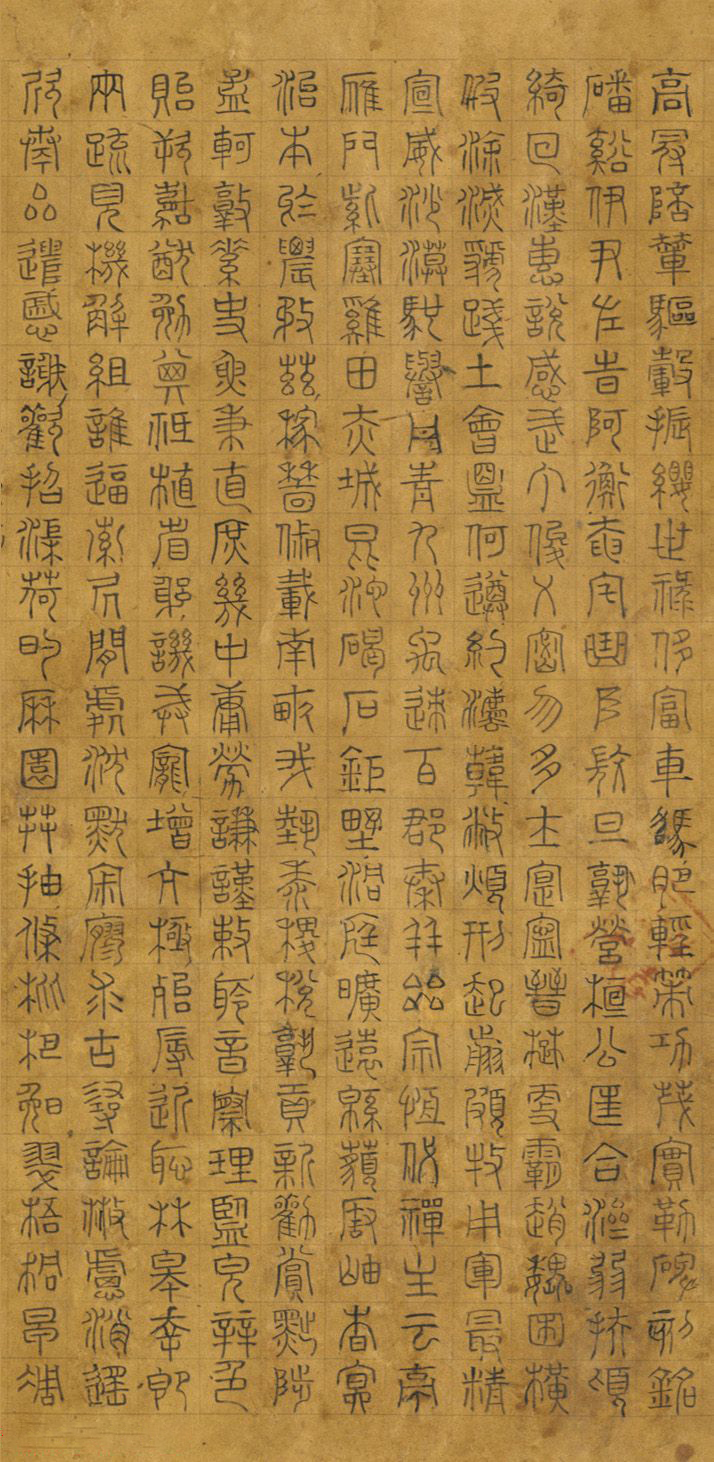 高冠陪輦驅轂振纓世祿侈富車駕肥輕策功茂實勒碑刻銘
磻谿伊尹左時阿衡奄宅曲阜微旦孰營桓公匡合濟弱扶傾
綺回漢惠說感武丁俊乂密勿多士寔寧晉楚更霸趙魏困橫
假途滅虢踐土會盟何遵約法韓弊煩刑起翦頗牧用軍最精
宣威沙漠馳譽丹青九州禹跡百郡秦并嶽宗恆岱禪主云亭
雁門紫塞雞田赤城昆池碣石鉅野洞庭曠遠綿邈巖岫杳冥
治本於農務茲稼穡俶載南畝我藝黍稷稅孰貢新勸賞黜陟
孟軻敦素史魚秉直庶幾中庸勞謙謹敕聆音察理監貌辨色
貽厥嘉猷勉其祗植省躬譏誡寵增亢極殆辱近恥林皋幸即
兩疏見機解組誰逼索居閒處沈默寂寥求古尋論散慮逍遙
欣奏累遣慼謝歡招渠荷的歷園莽抽條枇杷晚翠梧桐早凋